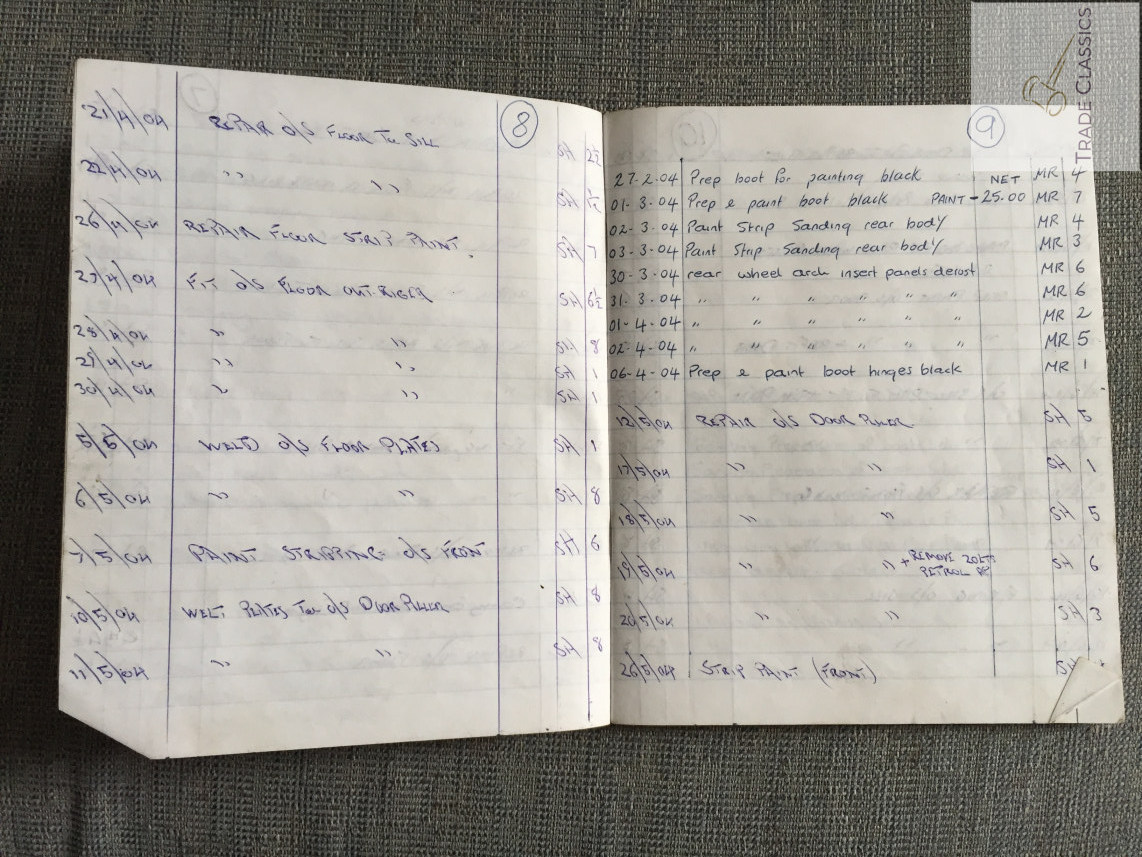 8
21/4/04 REPAIR O/S FLOOR TO SILL SH 2½
22/4/04 " " SH ½
26/4/04 REPAIR FLOOR STRIP PAINT SH 7
27/4/04 FIT O/S FLOOR OUTRIGER SH 6½
28/4/04 " " SH 8
29/4/04 " " SH 1
30/4/04 " " SH 1
5/5/04 WELD O/S FLOOR PLATES SH 1
6/5/04 " " SH 8
7/5/04 PAINT STRIPPING O/S FRONT SH 6
10/5/04 WELT PLATES TOO O/S DOOR PILLER SH 8
11/5/04 " " SH 8
9
27-2-04 Prep boot for painting black NET MR 4
01-3-04 Prep & paint boot black PAINT - 25.00 MR 7
02-3-04 Paint Strip Sanding rear body MR 4
03-3-04 Paint Strip Sanding rear body MR 3
30-3-04 rear wheel arch insert panels derust MR 6
31-3-04 " " " " " " MR 6
01-4-04 " " " " " " MR 2
02-4-04 " " " " " " MR 5
06-4-04 Prep & paint boot hinges black MR 1
12/5/04 REPAIR O/S DOOR PILLER SH 5
17/5/04 " " SH 1
18/5/04 " " SH 5
19/5/04 " " + REMOVE 20LTS
PETROL SH 6
20/5/04 " " SH 3
26/5/04 STRIP PAINT (FRONT) SH
TRADE CLASSICS